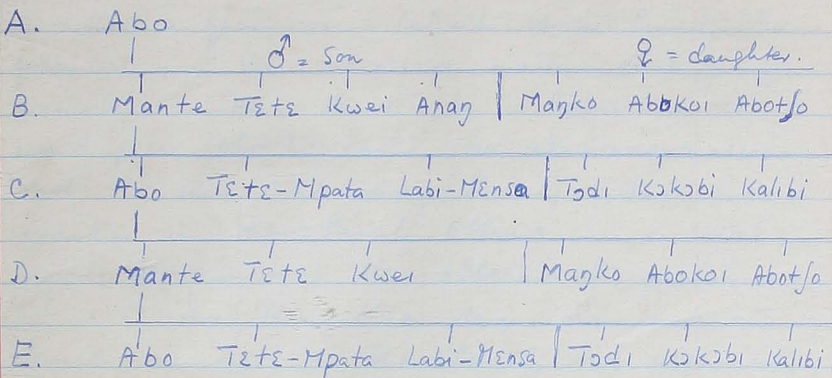 A. Abo
♂ = Son ♀ = daughter.
B. Mante Tɛtɛ Kwei Anaŋ Maŋko Abokoɪ Abotʃo
C. Abo Tɛtɛ-Mpata Labi-Mɛnsa Tɔdɪ Kɔkɔbi Kalɪbi
D. Mante Tɛtɛ Kweɪ Maŋko Abokoɪ Abotʃo
E. Abo Tɛtɛ-Mpata Labi-Mɛnsa Tɔdɪ Kɔkɔbɪ Kalɪbi